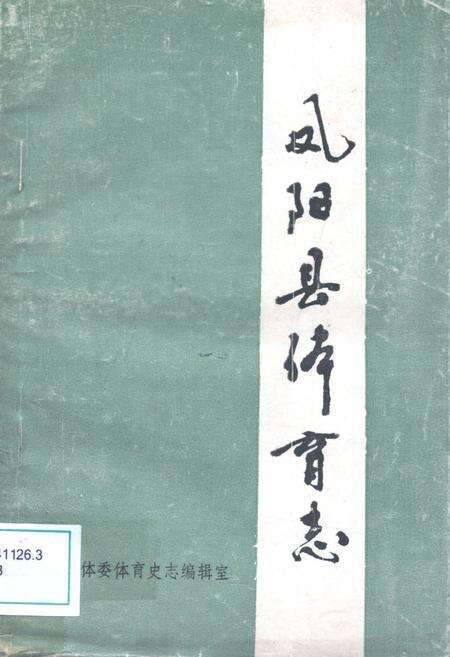 凤阳县体育志
体委体育史志编辑室
41126.3
3